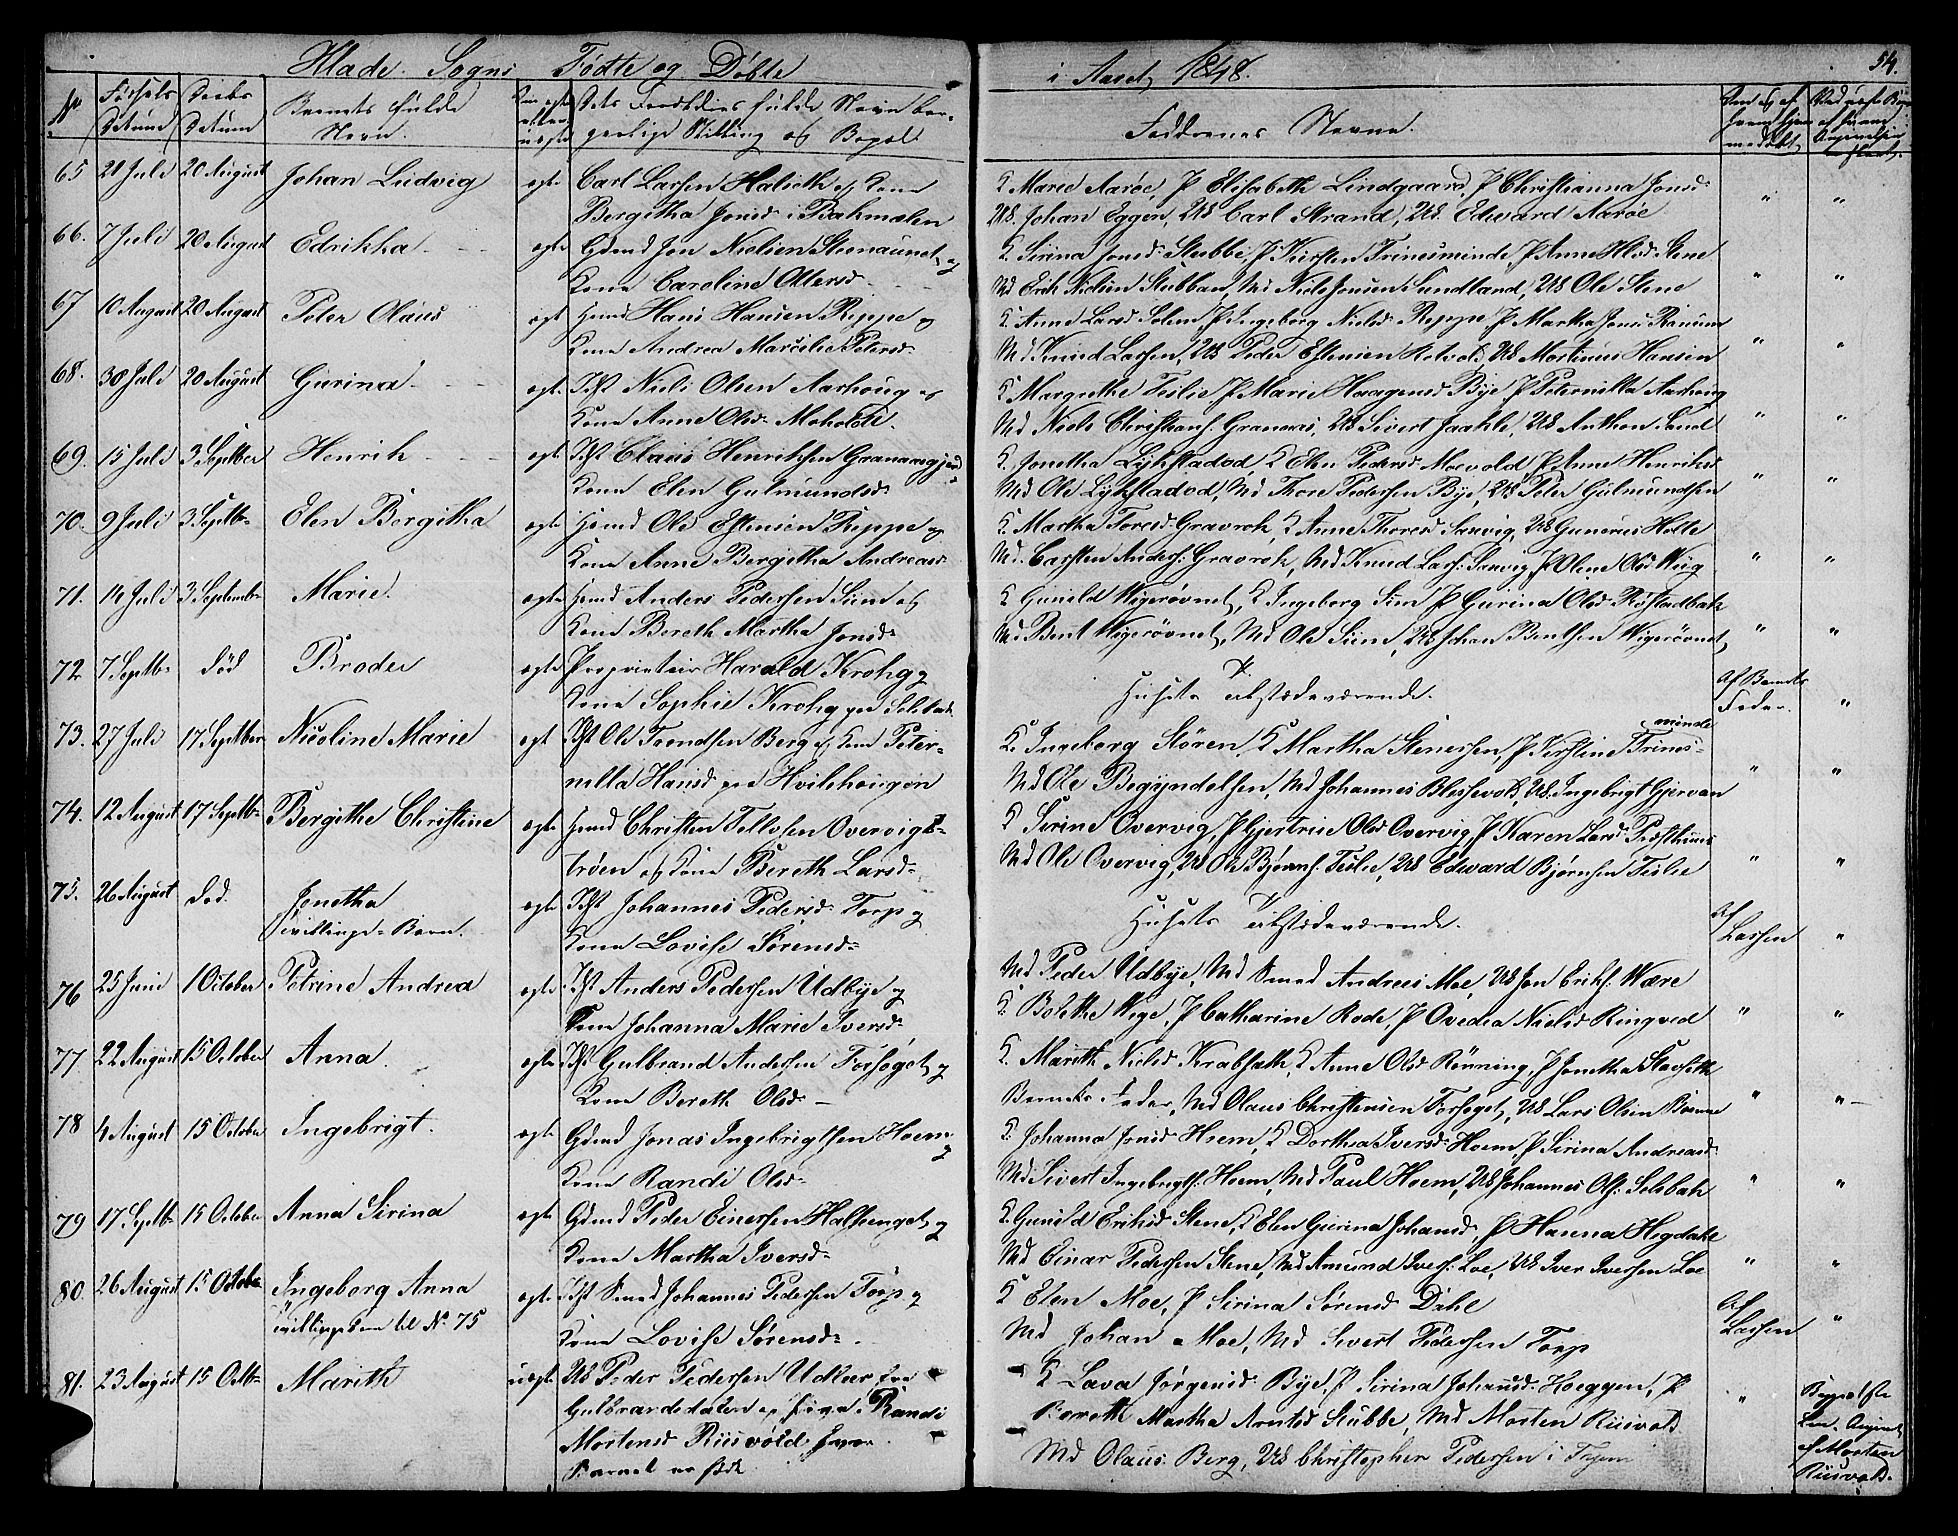 Hlade Sogns Fødte og Døbte i Aaret 1848. 54.
No Fødsels Datum Daabs Datum Barnets fulde Navn. Om ægte eller uægte Det Forældres fulde Navn borgerlige Stilling og Bopæl Faddernes Navne.
65 21 Juli 20 August Johan Ludvig ægte Carl Larsen Halseth og Kone
Bergitha Jonsd i Bakmælen
K Marie Aarøe, P Elisabeth Lindgaard, P Christianna Jonsd
UK. Johan Eggen, UK Carl Strand, UK. Edvard Aarøe " "
66. 7 Juli 20 August Edrikka ægte Gdmd Jon Nielsen Steenaunet og
Kone Caroline Ottersd
K. Sirina Jonsd Stubbe, P Kirsten Trinesminde, P Anne Olsd Stene
Md Erik Nielsen Stubban, Md Niels Jonsen Sundland, UK Ole Stene " "
67 10 August 20 August Peter Olaus ægt Huusmd Hans Hansen Reppe og
Kone Andrea Marcelie Petersd
K. Anne Larsd Solem, P Ingeborg Nielsd Reppe, P Martha Jonsd Ranum
Md Knud Larsen, UK Peder Estensen Retvolt, UK Martinus Hansen " "
68. 30 Juli 20 August Gurina ægte Ihst Niels Olsen Aarhoug og
Kone Anne Olsd Moholdt.
K Margrethe Teslie, P Marie Haagensd Bye, P Peternilla Aarhoug
Md Niels Christians. Granaas, UK Sivert Jaahle, UK Anthon Sand " "
69. 15 Juli 3 Septber Henrik ægte Ihst Claus Henriksen Granaasgjerd
Kone Elen Gulmundsd
K. Jonetha Lykstadød, K Elen Pedersd Moevold, P Anne Henriksd
Md Ole Lykstadød, Md Thore Pedersen Bye, UK Peter Gulmundsen " "
70. 9 Juli 3 Septb Elen Bergitha ægte Huusmd Ole Estensen Reppe og
Kone Anne Bergitha Andreasd
K. Martha Toresd Gravrok, K Anne Thoresd Saxvig, UK Gunerius Holte
Md. Carsten Anders. Gravrok, Md Knud Lars. Saxvig, P Oline Olsd Wiig " "
71. 14 Juli 3 Septemb Marie. ægte Huusmd Anders Pedersen Siim og
Kone Bereth Martha Jonsd
K Gunild Wigerøvnet, K Ingeborg Siim, P Gurina Olsd Røstadbak
Md. Bent Wigerøvnet, Md Ole Siim, UK Johan Bentsen Wigerøvnet " "
72 7 Septb død Broder ægte Proprietair Harald Krohg og
Kone Sophie Krohg paa Selsbak
Husets tilstædeværende. Af Barnets Fader. "
73. 27 Juli 17 Septber Nicoline Marie ægt Ihst Ole Trondsen Berg og Kone Peter-
nilla Hansd paa Hvilhougen
K. Ingeborg Støren, K Martha Stenersen, P Kirstine Trines-
minde
Md Ole Begyndelsen, Md Johannes Blessevold, UK. Ingebrigt Gjervan " "
74. 12 August 17 Septb Bergithe Christine ægte Huusmd Christen Tellefsen Overvigs-
trøen og Kone Bereth Larsd
K Sirine Overvig, P Gjertrue Olsd Overvig, P Karen Larsd Præsthuus
Md Ole Overvig, UK Ole Bjørns. Teslie, UK Edvard Bjørnsen Teslie " "
75. 26 August død Jonetha
Tvillinge-Barn. ægte Ihst Johannes Peders. Torp og
Kone Lovise Sørensd
Husets tilstædeværende. Af Larsen "
76 25 Juni 1 October Petrine Andrea ægte Ihst Anders Pedersen Udbye og
Kone Johanna Marie Iversd
Md. Peder Udbye, Md Smed Andreas Moe, UK Jon Eriks. Være
K. Bolethe Wige, P Catharine Rode, P Ovedia Nielsd Ringved " "
77 22 August 15 October Anna. ægte Ihst Gulbrand Andersen Forsøget og
Kone Bereth Olsd
K. Marith Nielsd Krabsæth, K Anne Olsd Rönning, P Jonetha Slavseth
Barnets Fader, Md Olaus Christensen Forsøget, UK Lars Olsen " "
78 4 August 15 Octobr Ingebrigt. ægte Gdmd Jonas Ingebrigtsen Hoem og
Kone Randi Olsd
K. Johanna Jonsd Hoem, K Dorthea Iversd Hoem, P Sirina Andreasd
Md Sivert Ingebrigts. Hoem, Md Paul Hoem, UK Johannes Ols. Selsbak " "
79 17 Septb 15 October Anna Sirina ægte Gdmd Peder Einersen Halsenget og
Kone Martha Iversd
K. Gunild Eriksd Stene, K Elen Gurina Johansd, P Hanna Hegdahl
Md Einar Pedersen Stene, Md Amund Ivers. Loe, UK Iver Iversen Loe " "
80. 26 August 15 Octob Ingeborg Anna
Tvillingebarn til No 75 ægte Ihst Smed Johannes Pedersen Torp og
Kone Lovise Sørensd
K Elen Moe, P Sirina Sørensd Dahl
Md Johan Moe, Md Sivert Pedersen Torp Af Larsen "
81. 23 August 15 Octb Marith uægte UK Peder Pedersen Udkier fra
Gulbrandsdalen og Pigen Randi
Mortensd Riisvold hvor
Barnet er født
K Lava Jørgensd Bye, P Sirina Johansd Hoeggen, P
Bereth Martha Arntsd Stubbe, Md Morten Riisvold
Md Olaus Berg, UK Christopher Pedersen i " Morten
Riisvold.